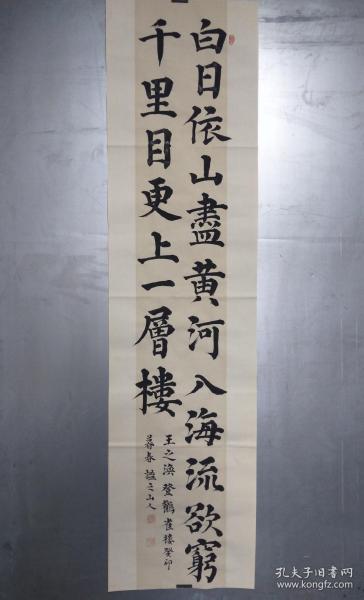 白日依山盡黄河入海流欲窮
千里目更上一層樓
王之渙登鸛雀樓癸卯
暮春 山人
孔夫子旧书网
www.kongfz.com